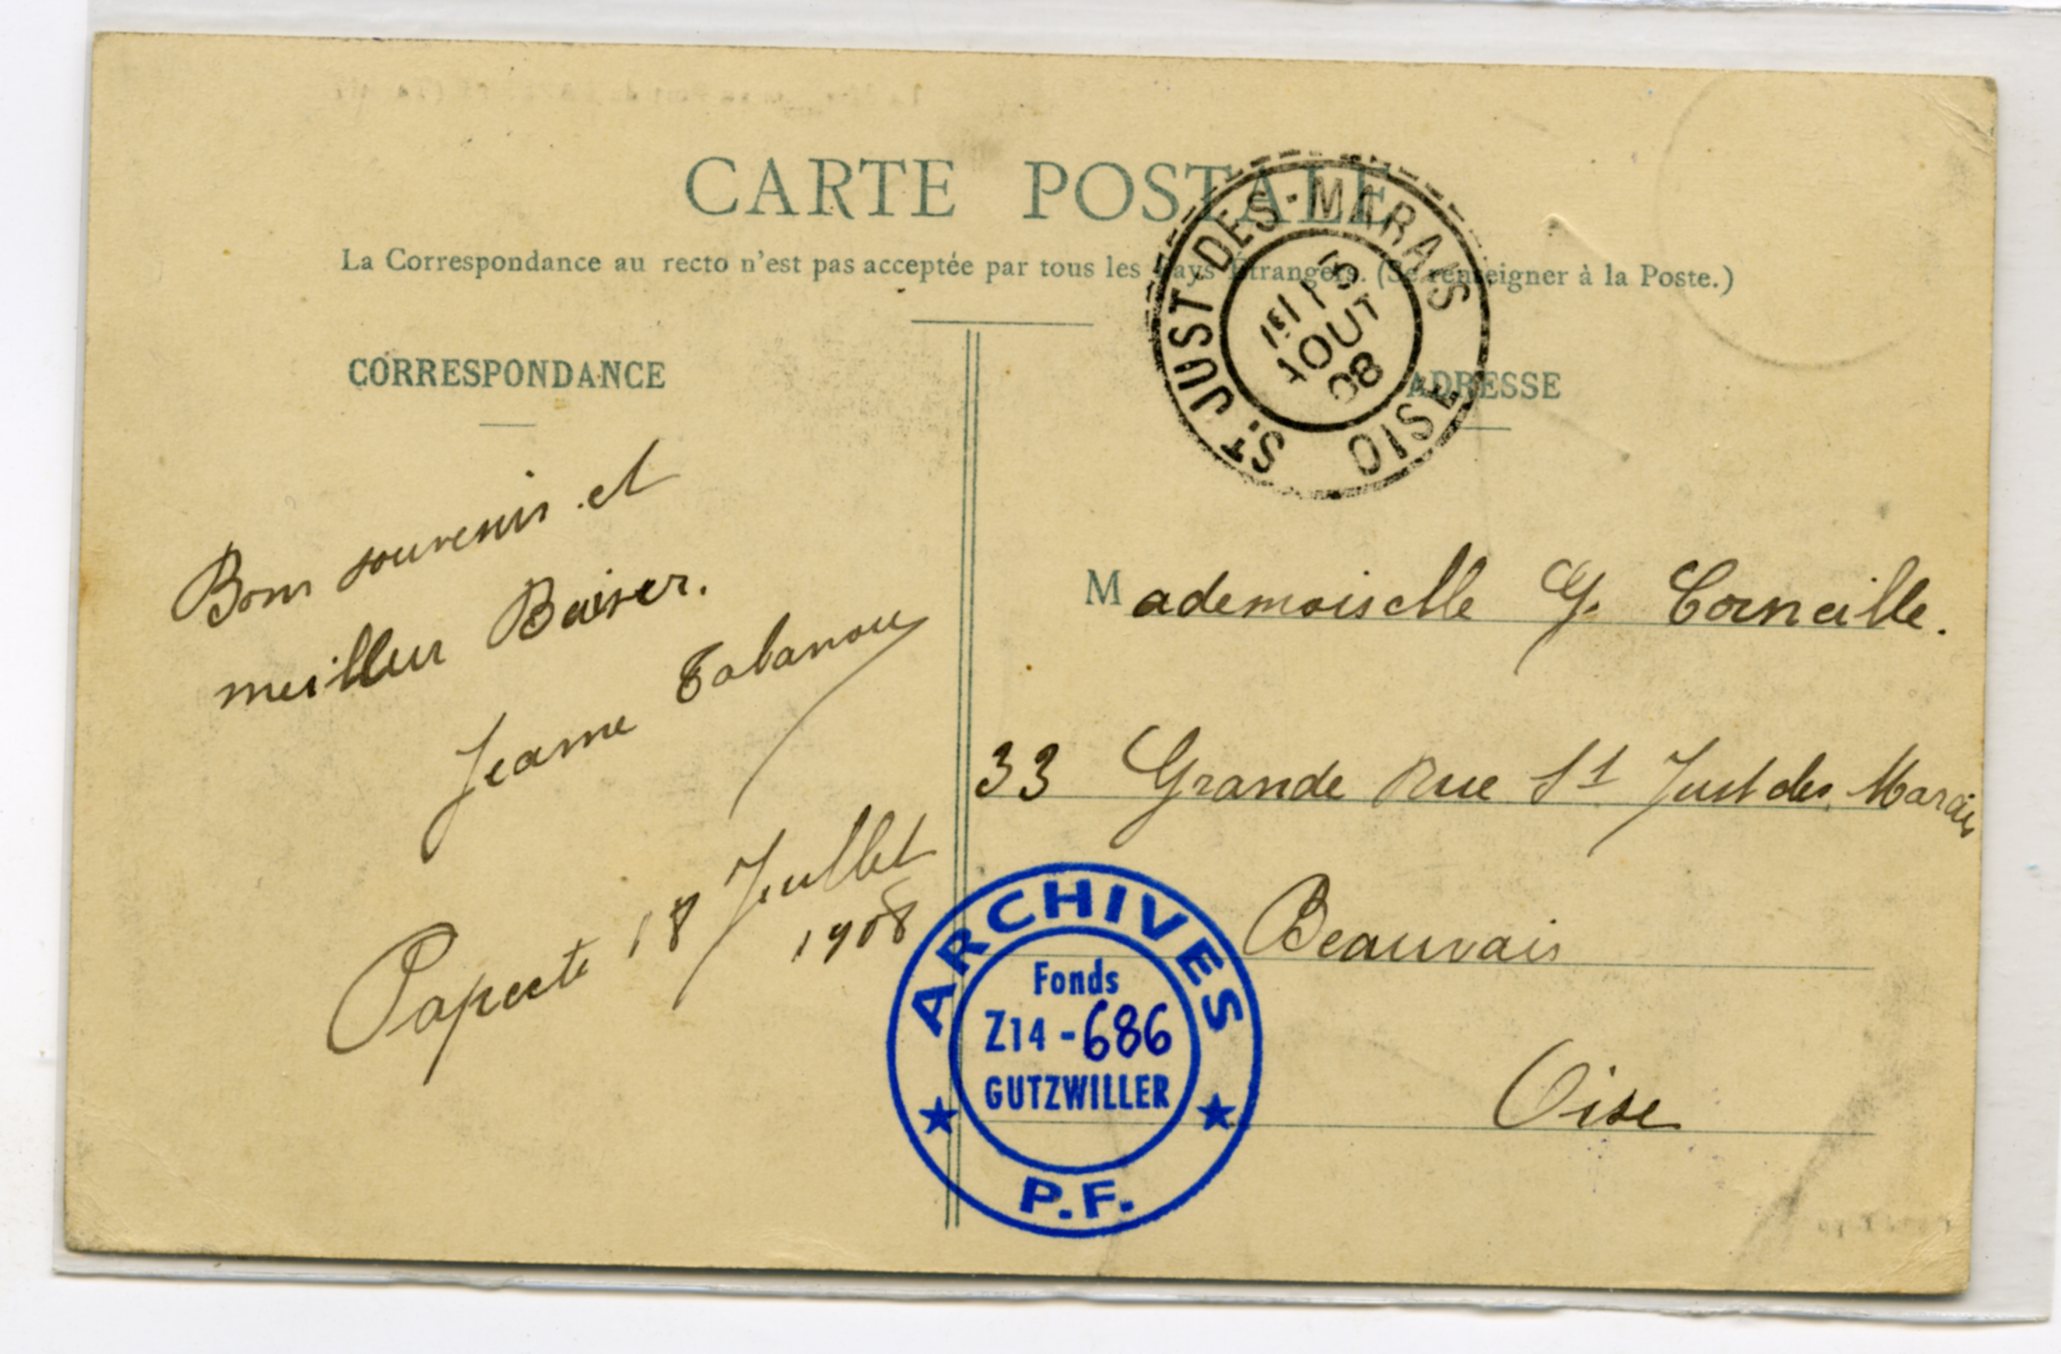 CARTE POSTALE
La Correspondance au recto n'est pas acceptée par tous les Pays Étrangers. (Se renseigner à la Poste.)
CORRESPONDANCE
ADRESSE
ST JUST-DES-MARAIS
13
AOUT
08
OISE
Bons souvenirs et
meilleur Baiser.
Jeanne Tabanou
Papeete 18 Juillet
1908
Mademoiselle G. Corneille.
33 Grande Rue St Just des Marais
Beauvais
Oise
ARCHIVES
Fonds
Z14-686
GUTZWILLER
P.F.